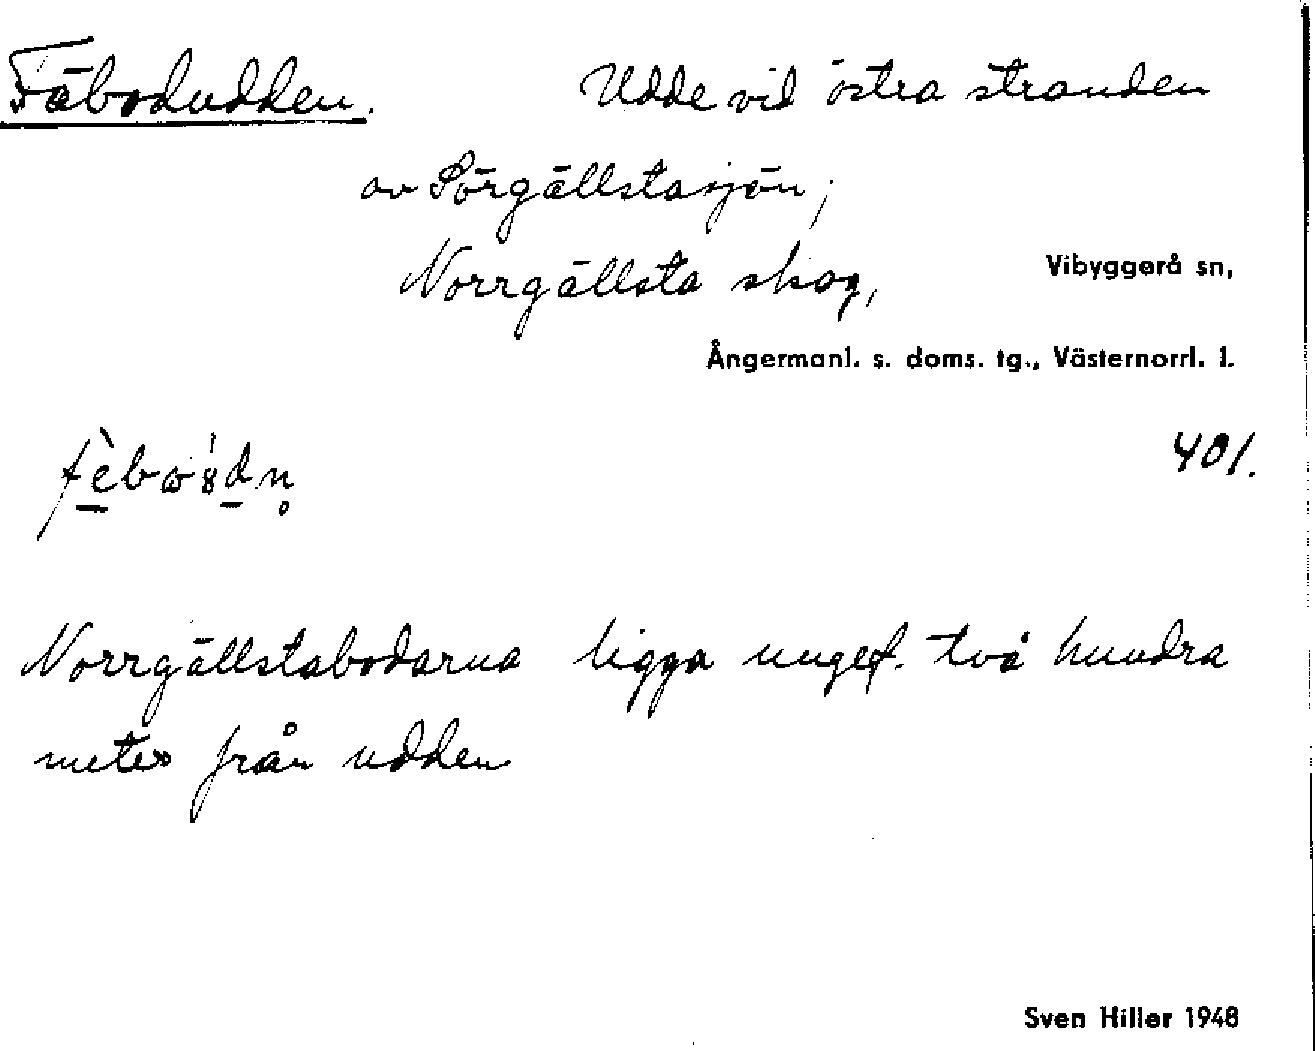 Fäbodudden. Udde vid östra stranden
av Sörgällstasjön;
Norrgällsta skog, Vibyggerå sn,
Ångermanl. s. doms. tg., Västernorrl. l.
401.
Norrgällstabodarna ligga ungef. två hundra
meter från udden
Sven Hiller 1948